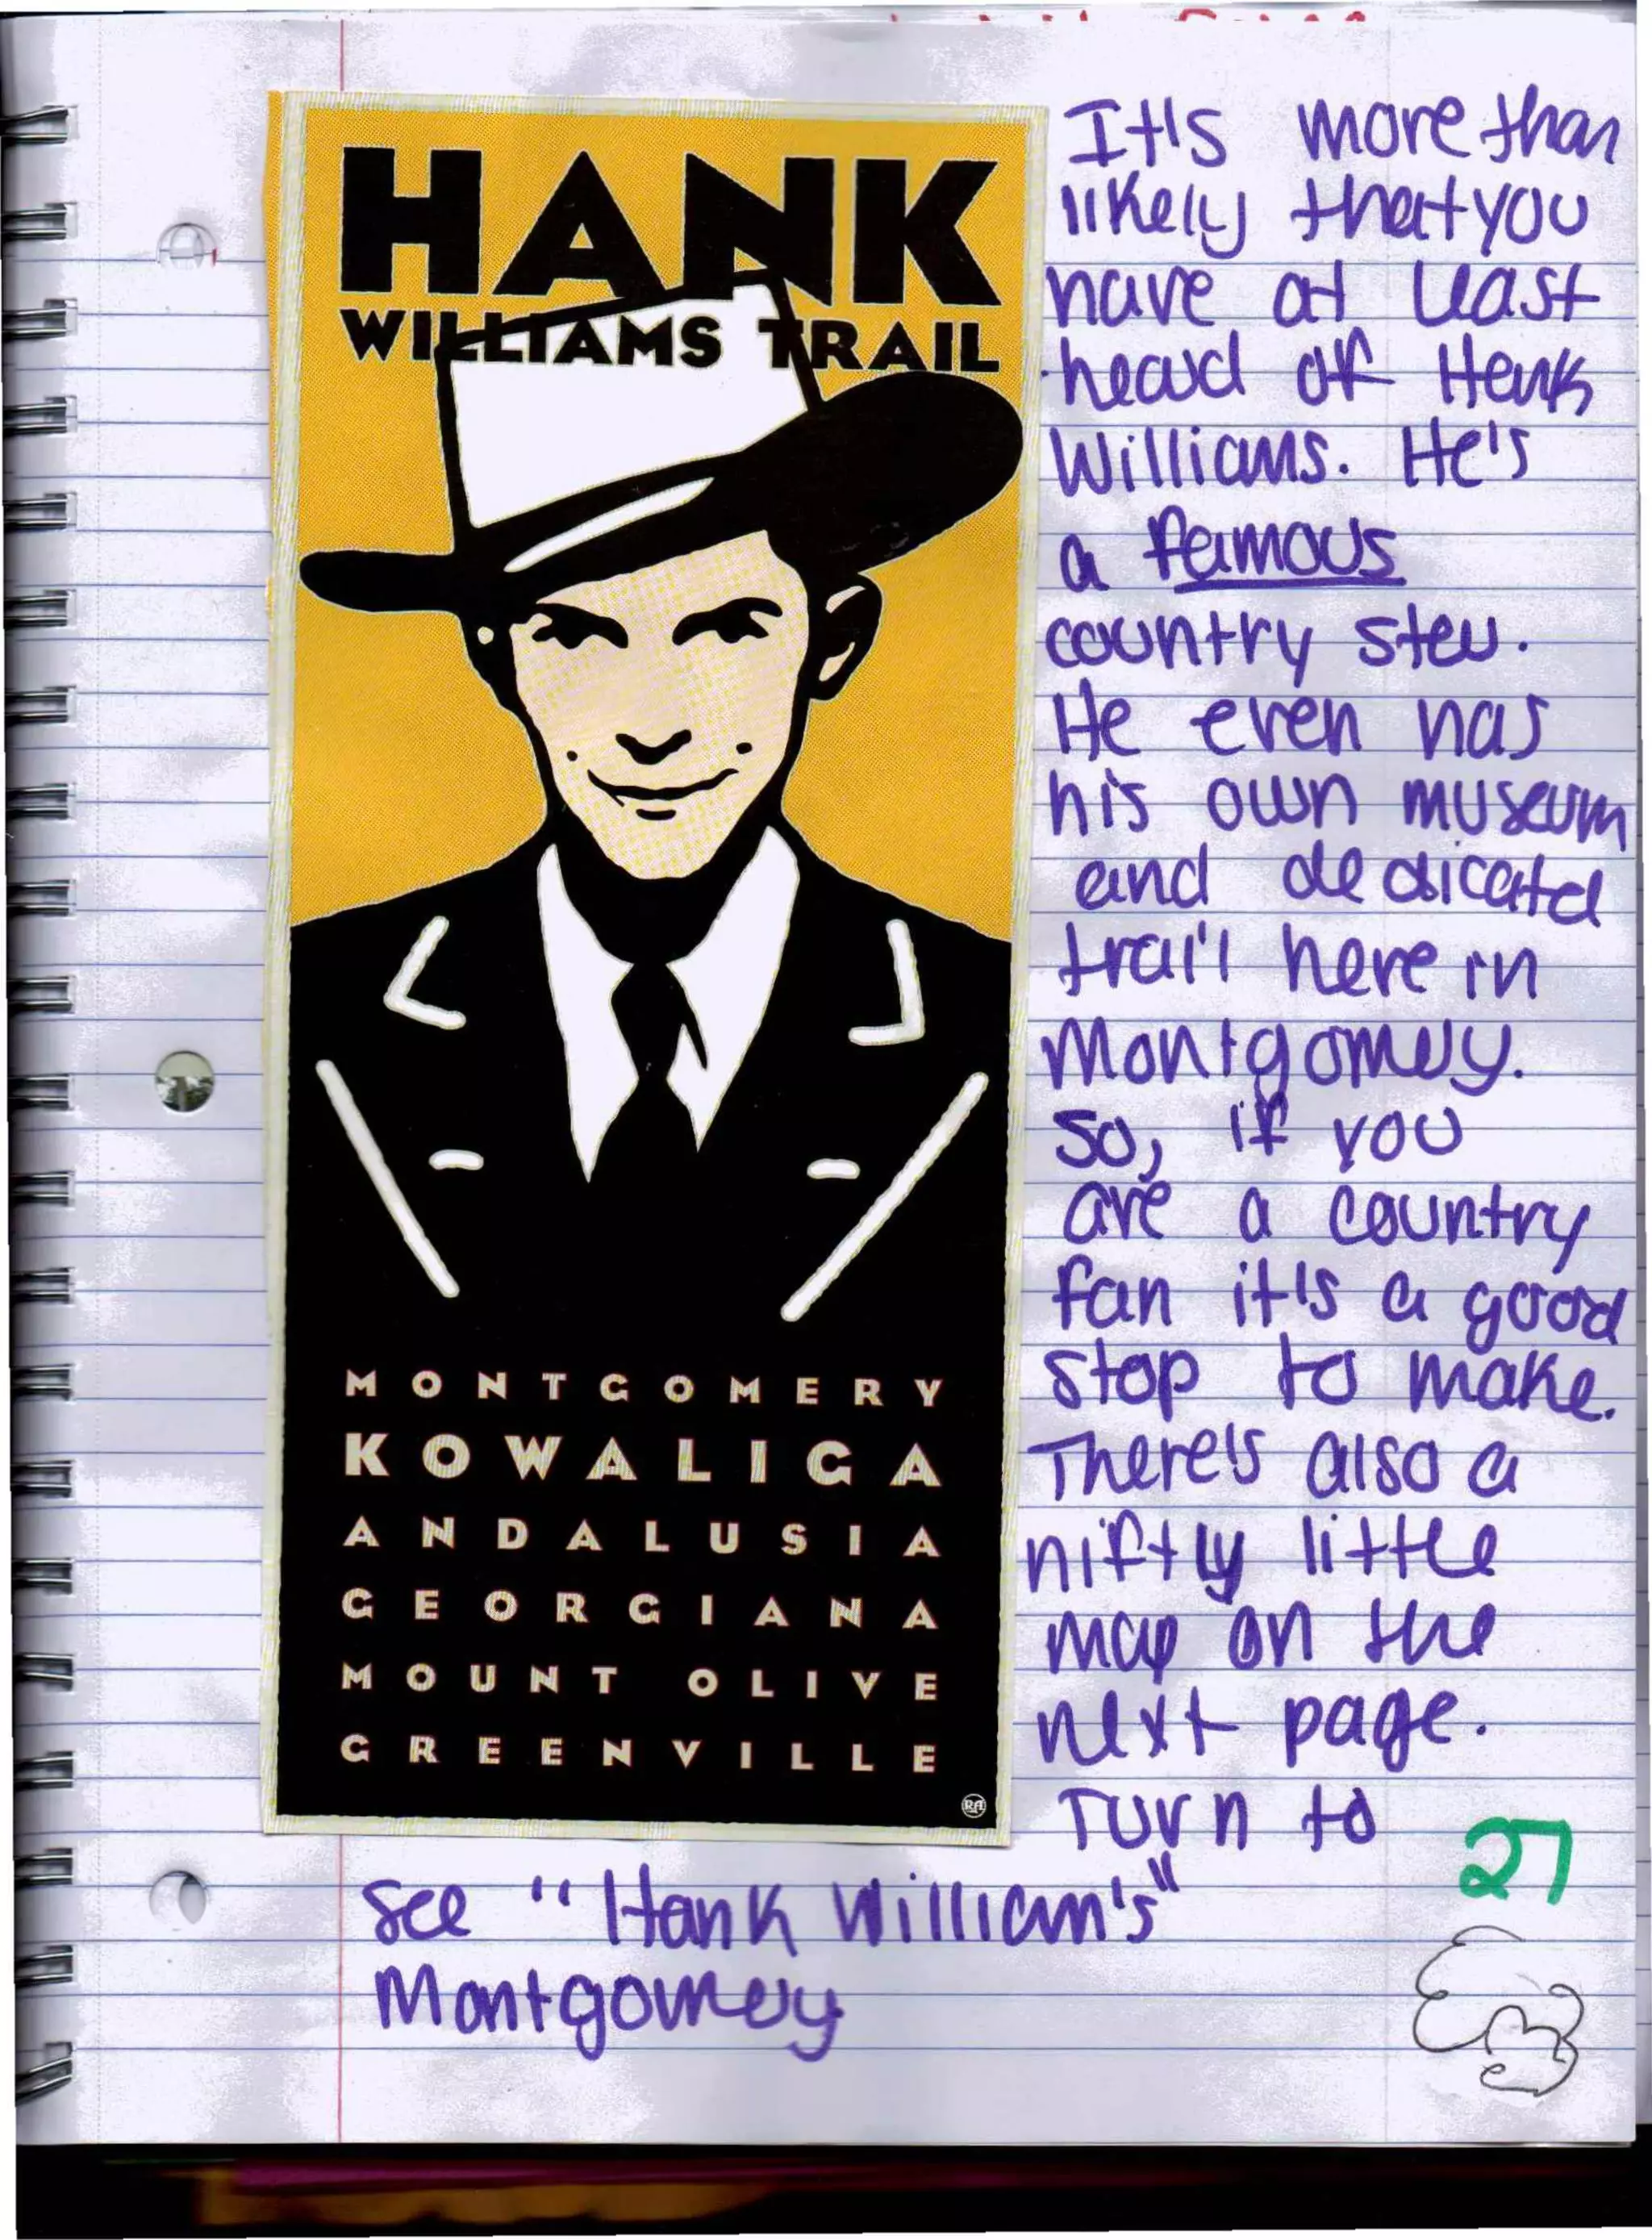 HANK
WILLIAMS TRAIL
MONTGOMERY
KOWALIGA
ANDALUSIA
GEORGIANA
MOUNT OLIVE
GREENVILLE
RA
It's more than
likely that you
have at least
heard of Hank
Williams. He's
a famous
country star.
He even has
his own museum
and dedicated
trail here in
Montgomery.
So, if you
are a country
fan it's a good
stop to make.
There's also a
nifty little
map on the
next page.
Turn to
see "Hank William's"
Montgomery
27